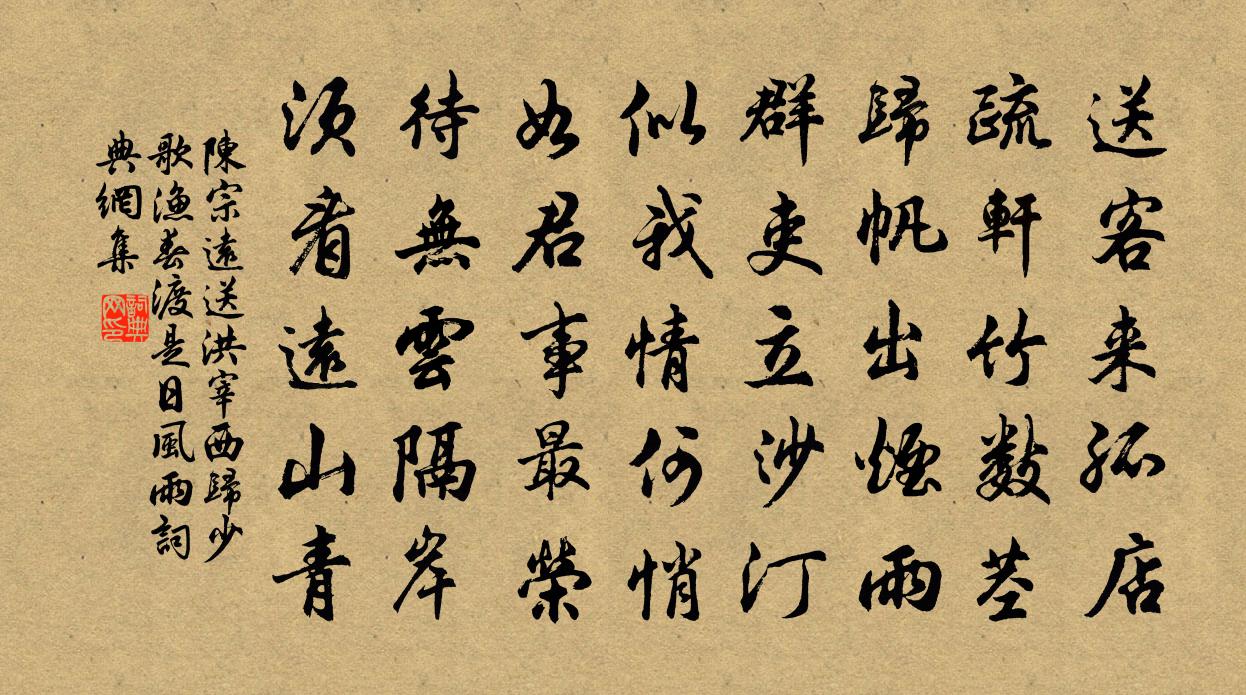 送客来孤店
疏軒竹數莖
歸帆出煙雨
群吏立沙汀
似我情何悄
如君事最榮
待無雲隔岸
須看遠山青
陳宗遠送洪宰西歸少
歌漁春渡是日風雨詞
典網集
詞典
网印